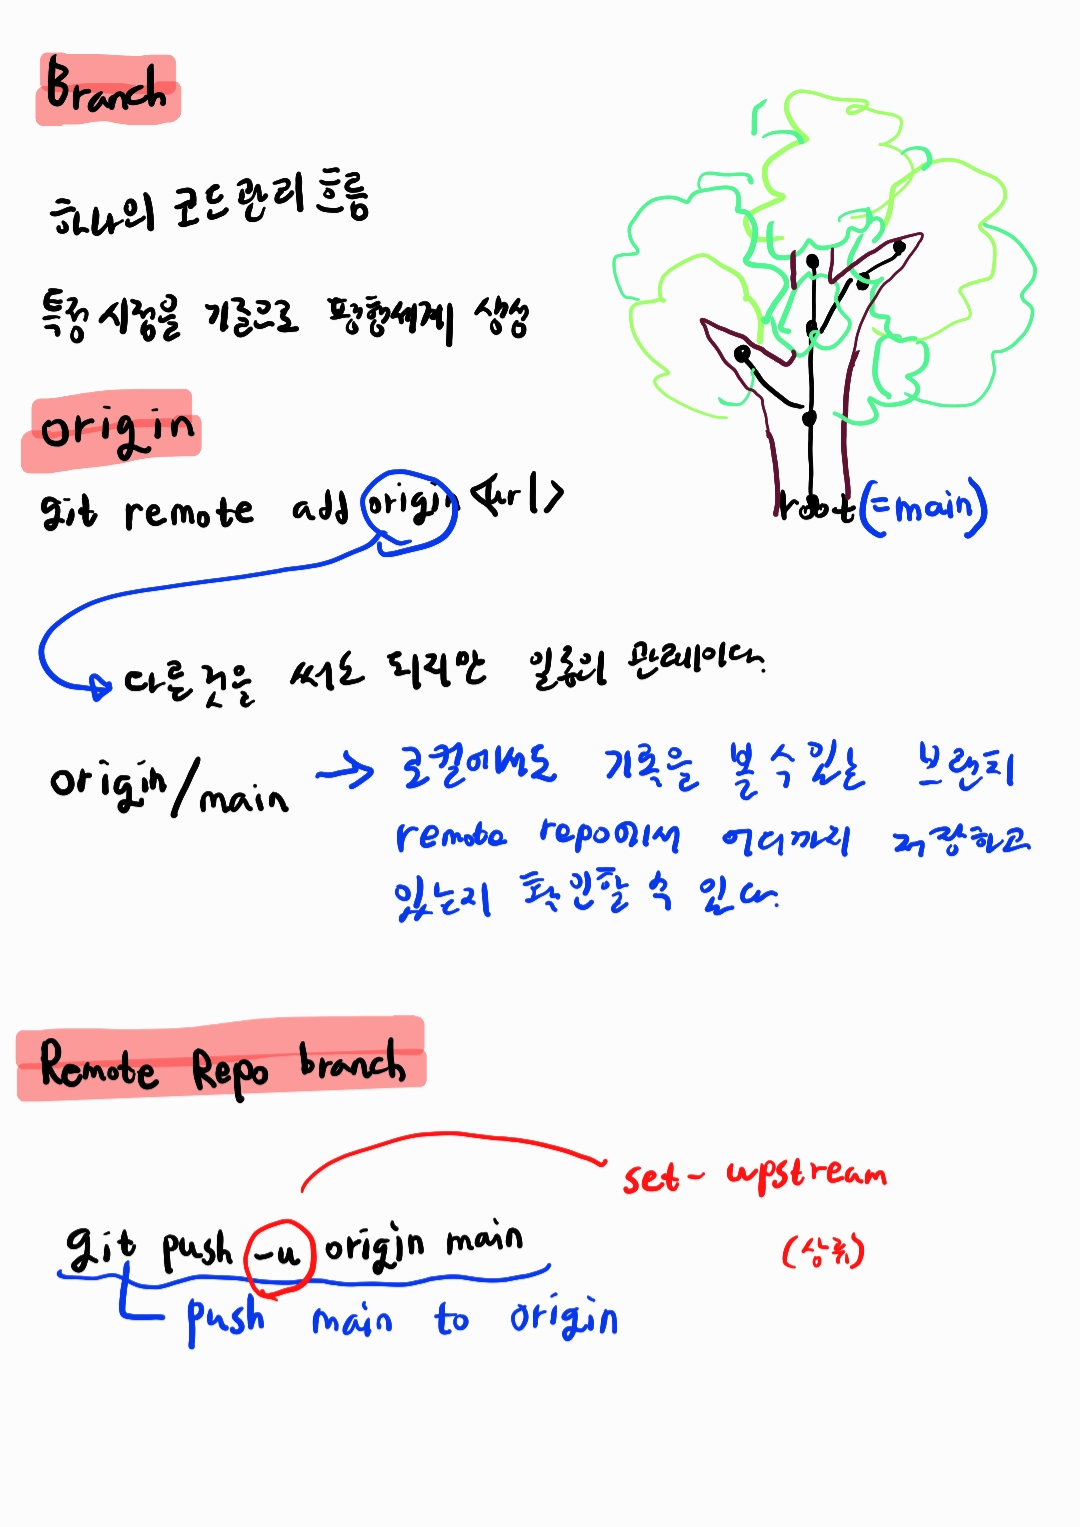 Branch
하나의 코드관리 흐름
특정 시점을 기준으로 평행세계 생성
origin
git remote add origin <url>
root (=main)
다른것을 써도 되지만 일종의 관례이다.
origin/main → 로컬에서도 기록을 볼 수 있는 브랜치
remote repo에서 어디까지 저장하고
있는지 확인할 수 있다.
Remote Repo branch
set-upstream
(상류)
git push -u origin main
push main to origin